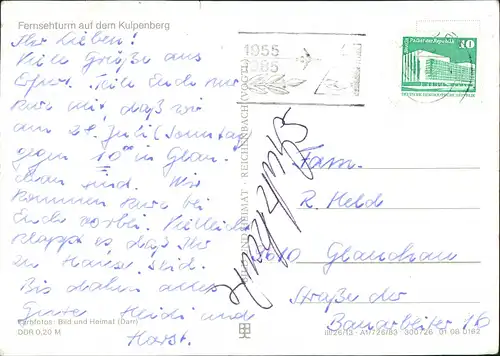 Fernsehturm auf dem Kulpenberg
Ihr Lieben!
Viele Grüße aus
Erfurt. Teile Euch nur
kurz mit, daß wir
am 28. Juli (Sonntag)
gegen 10°° in Glau-
chau sind. Wir
kommen kurz bei
Euch vorbei. Vielleicht
klappt es daß Ihr
zu Hause seid.
Bis dahin alles
Gute Heidi und
Horst.
Farbfotos: Bild und Heimat (Darr)
DDR 0,20 M
BILD UND HEIMAT · REICHENBACH (VOGTL)
1955
1985
Palast der Republik
10
Fam.
R. Held
9610 Glauchau
Straße der
Bauarbeiter 16
300726 01 08 0162